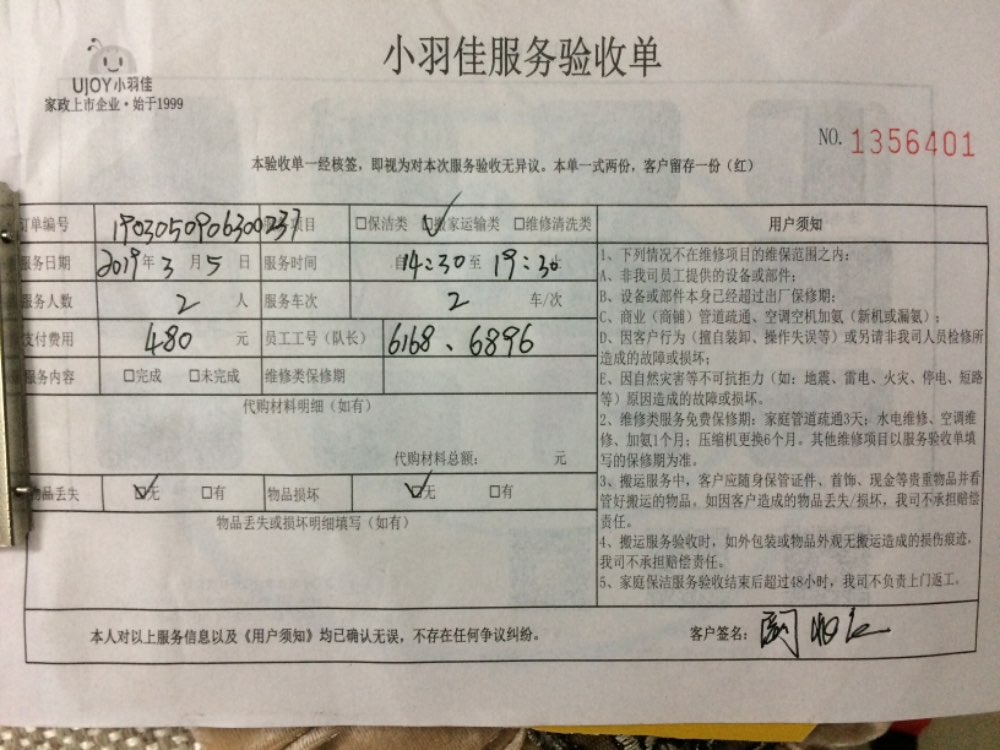 UJOY小羽佳
家政上市企业·始于1999
小羽佳服务验收单
NO. 1356401
本验收单一经核签，即视为对本次服务验收无异议。本单一式两份，客户留存一份（红）
订单编号 1903050906300237 服务项目 □保洁类 ☑搬家运输类 □维修清洗类
服务日期 2019年3月5日 服务时间 自14:30至19:30止
服务人数 2 人 服务车次 2 车/次
支付费用 480 元 员工工号（队长） 6168、6896
服务内容 □完成 □未完成 维修类保修期
代购材料明细（如有）
代购材料总额： 元
物品丢失 ☑无 □有 物品损坏 ☑无 □有
物品丢失或损坏明细填写（如有）
用户须知
1、下列情况不在维修项目的维保范围之内：
A、非我司员工提供的设备或部件；
B、设备或部件本身已经超过出厂保修期；
C、商业（商铺）管道疏通、空调空机加氨（新机或漏氨）；
D、因客户行为（擅自装卸、操作失误等）或另请非我司人员检修所
造成的故障或损坏；
E、因自然灾害等不可抗拒力（如：地震、雷电、火灾、停电、短路
等）原因造成的故障或损坏。
2、维修类服务免费保修期：家庭管道疏通3天；水电维修、空调维
修、加氨1个月；压缩机更换6个月。其他维修项目以服务验收单填
写的保修期为准。
3、搬运服务中，客户应随身保管证件、首饰、现金等贵重物品并看
管好搬运的物品。如因客户造成的物品丢失/损坏，我司不承担赔偿
责任。
4、搬运服务验收时，如外包装或物品外观无搬运造成的损伤痕迹，
我司不承担赔偿责任。
5、家庭保洁服务验收结束后超过48小时，我司不负责上门返工。
本人对以上服务信息以及《用户须知》均已确认无误，不存在任何争议纠纷。
客户签名：